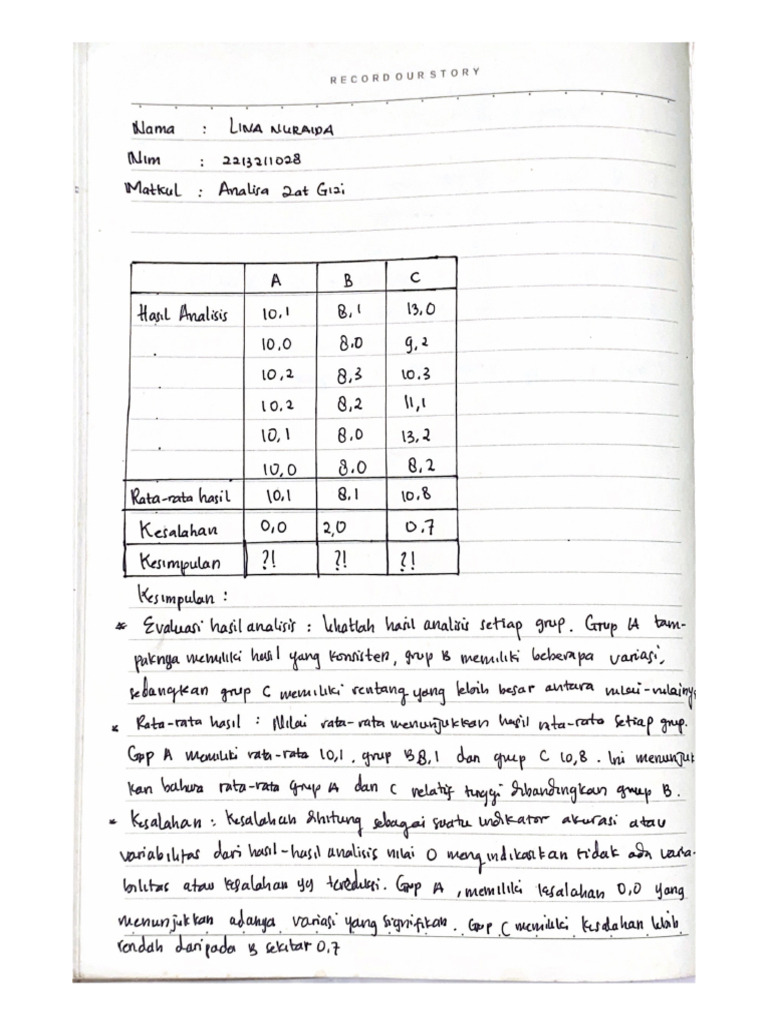 RECORD OUR STORY
Nama : LINA NURAIDA
Nim : 2213211028
Matkul : Analisa Zat Gizi
A B C
Hasil Analisis 10,1 8,1 13,0
10,0 8.0 9,2
10,2 8,3 10.3
10,2 8,2 11,1
10,1 8.0 13,2
10,0 8.0 8,2
Rata-rata hasil 10,1 8,1 10.8
Kesalahan 0,0 2,0 0.7
Kesimpulan ?! ?! ?!
Kesimpulan :
* Evaluasi hasil analisis : lihatlah hasil analisis setiap grup. Grup A tam-
paknya memiliki hasil yang konsisten, grup B memiliki beberapa variasi,
sedangkan grup C memiliki rentang yang lebih besar antara nilai-nilainya
* Rata-rata hasil : Nilai rata-rata menunjukkan hasil rata-rata setiap grup.
Grup A memiliki rata-rata 10,1, grup B 8,1 dan grup C 10,8. Ini menunjuk
kan bahwa rata-rata Grup A dan C relatif tinggi dibandingkan grup B.
* Kesalahan : Kesalahan dihitung sebagai suatu indikator akurasi atau
variabilitas dari hasil-hasil analisis nilai 0 mengindikasikan tidak ada varia-
bilitas atau kesalahan yg tereduksi. Grup A, memiliki kesalahan 0,0 yang
menunjukkan adanya variasi yang signifikan. Grup C memiliki kesalahan lebih
rendah daripada B sekitar 0,7